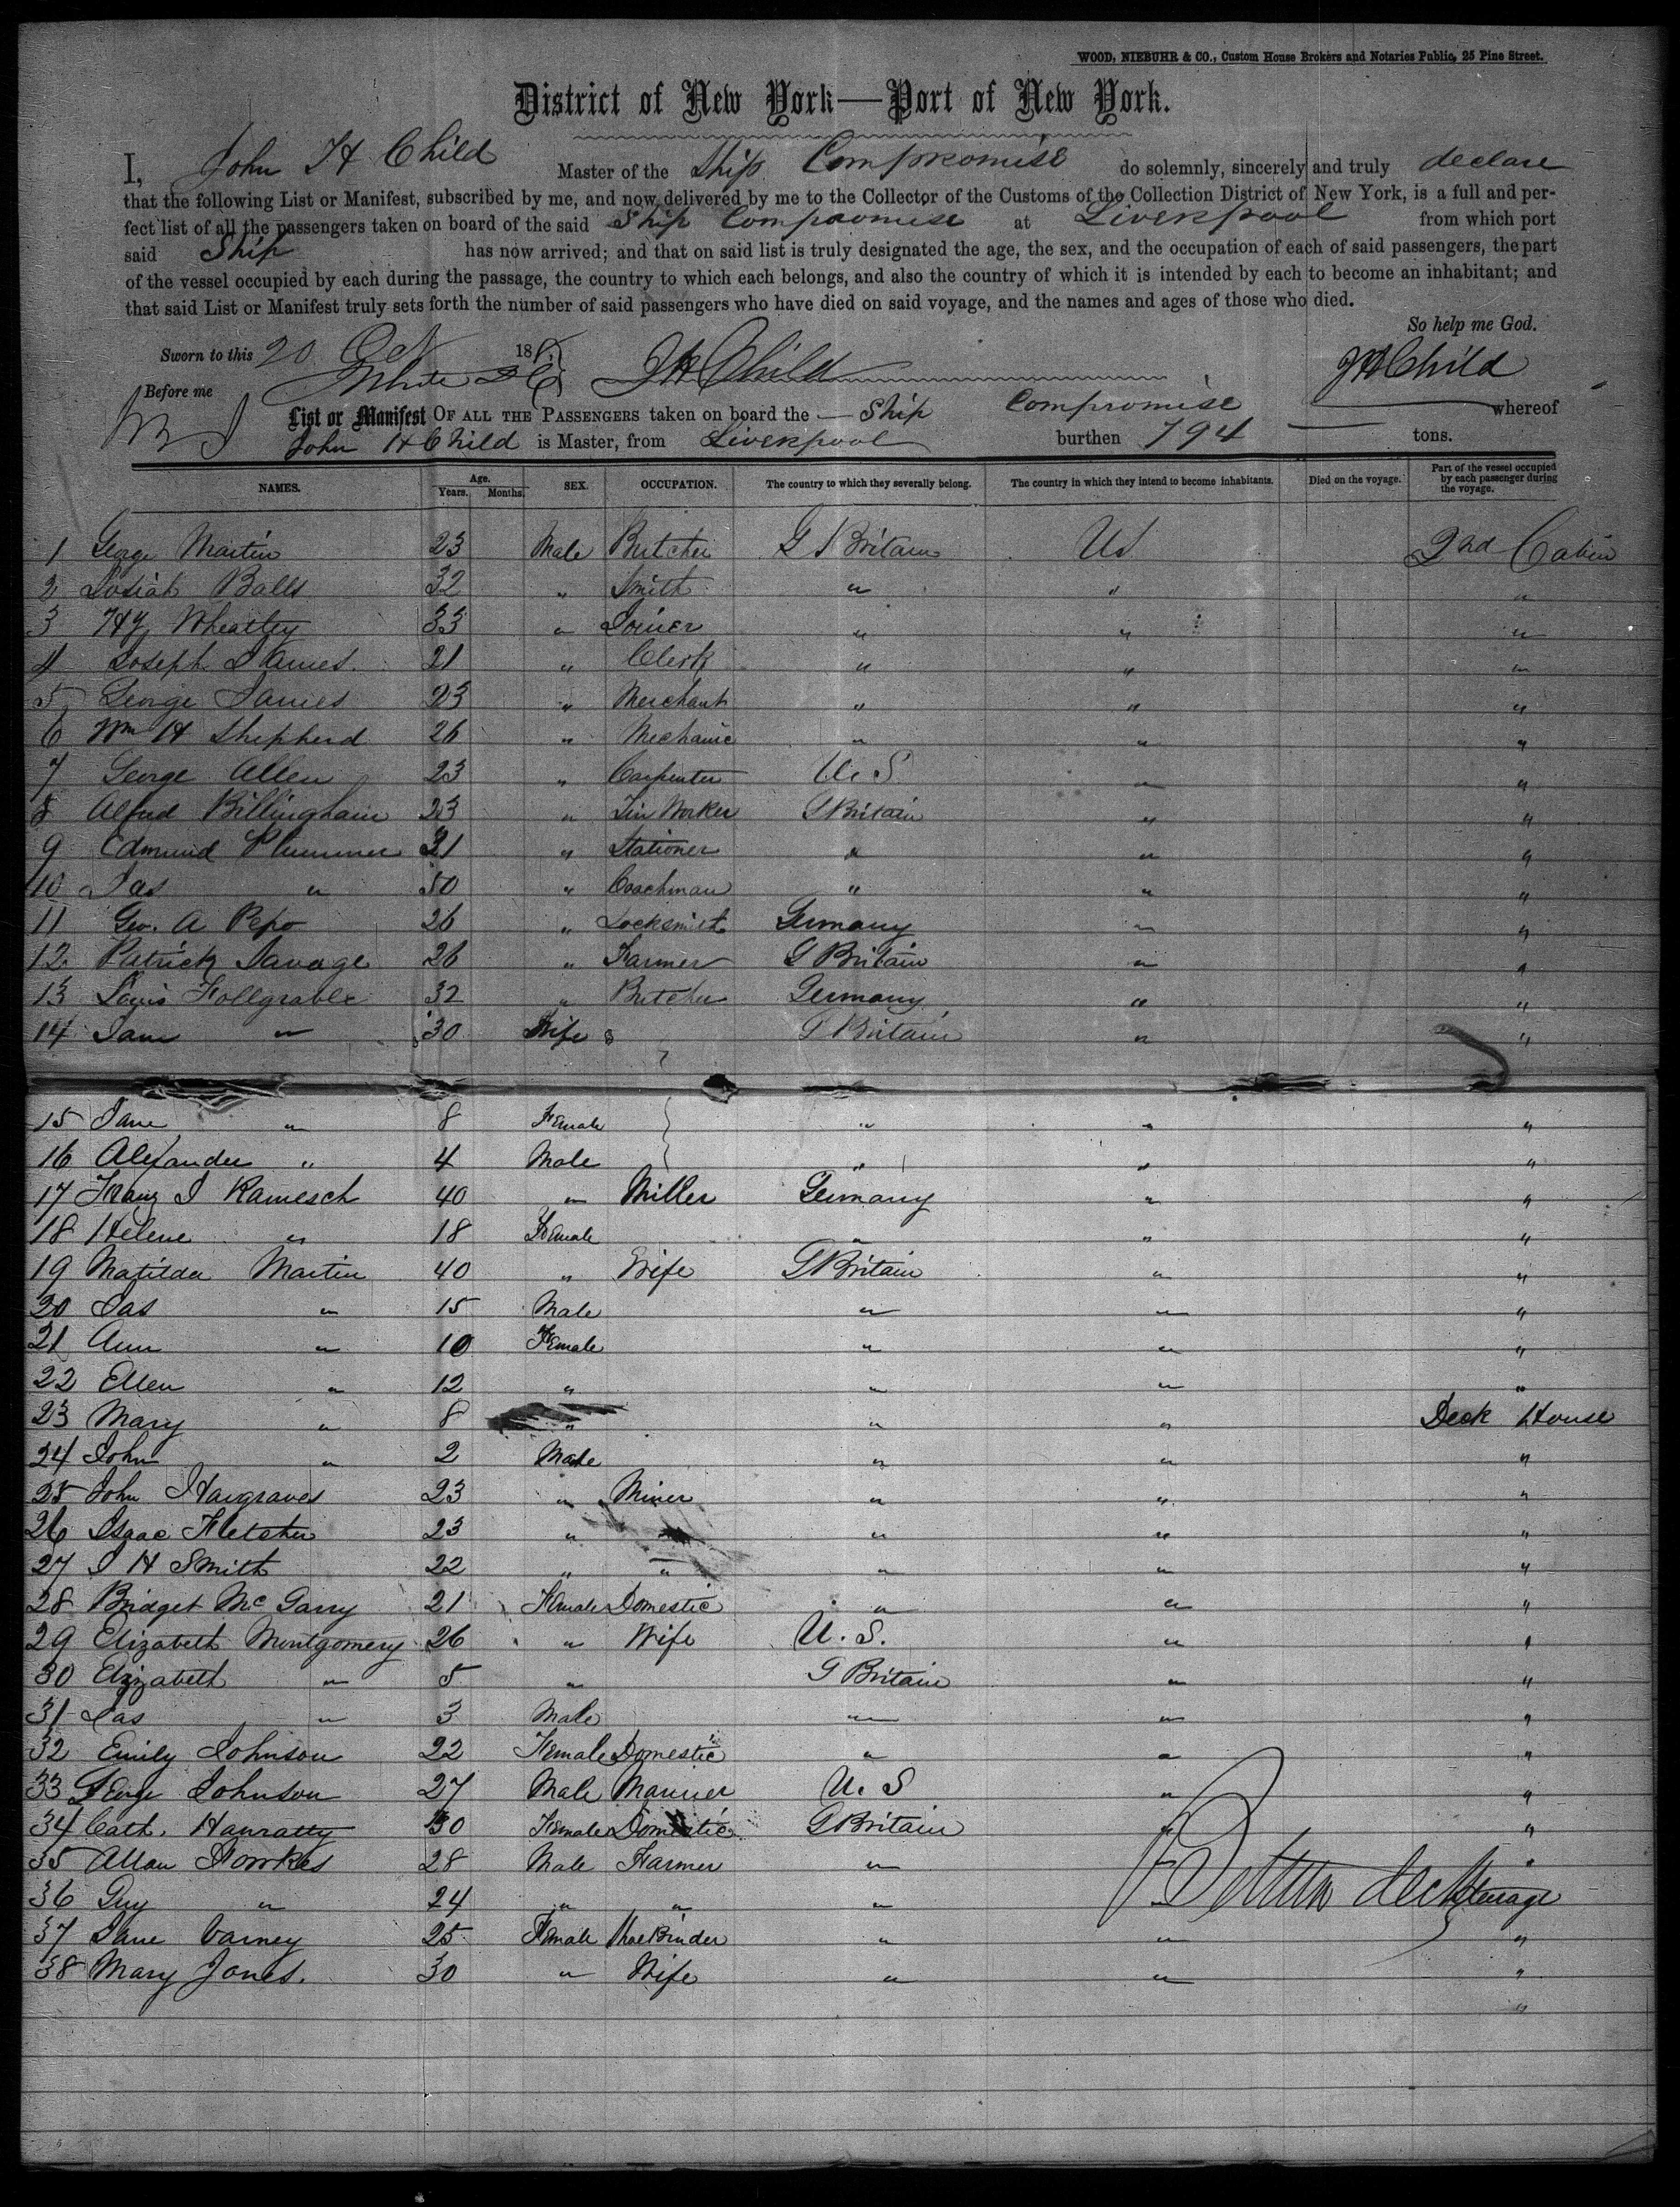 WOOD, NIEBUHR & CO., Custom House Brokers and Notaries Public, 25 Pine Street.
District of New York—Port of New York.
I, John H Child Master of the Ship Compromise do solemnly, sincerely and truly declare
that the following List or Manifest, subscribed by me, and now delivered by me to the Collector of the Customs of the Collection District of New York, is a full and per-
fect list of all the passengers taken on board of the said Ship Compromise at Liverpool from which port
said Ship has now arrived; and that on said list is truly designated the age, the sex, and the occupation of each of said passengers, the part
of the vessel occupied by each during the passage, the country to which each belongs, and also the country of which it is intended by each to become an inhabitant; and
that said List or Manifest truly sets forth the number of said passengers who have died on said voyage, and the names and ages of those who died.
So help me God.
Sworn to this 20 Oct 18 JH Child JH Child
Before me White
List or Manifest OF ALL THE PASSENGERS taken on board the Ship Compromise whereof
John H Child is Master, from Liverpool burthen 794 tons.
NAMES. Age. Years. Months. SEX. OCCUPATION. The country to which they severally belong. The country in which they intend to become inhabitants. Died on the voyage. Part of the vessel occupied by each passenger during the voyage.
1 George Martin 23 Male Butcher G Britain US 2nd Cabin
2 Josiah Balls 32 " Smith " " "
3 Hy Wheatley 33 " Joiner " " "
4 Joseph James 21 " Clerk " " "
5 George James 23 " Merchant " " "
6 Wm H Shepherd 26 " Mechanic " " "
7 George Allen 23 " Carpenter U.S " "
8 Alfred Billingham 23 " Tin Worker G Britain " "
9 Edmund Plummer 21 " Stationer " " "
10 Jas " 50 " Coachman " " "
11 Geo. A Pepo 26 " Locksmith Germany " "
12 Patrick Savage 26 " Farmer G Britain " "
13 Louis Follgrable 32 " Butcher Germany " "
14 Jane " 30 Wife G Britain " "
15 Jane " 8 Female " " "
16 Alexander " 4 Male " " "
17 Franz J Ramesch 40 " Miller Germany " "
18 Helene " 18 Female " " "
19 Matilda Martin 40 " Wife G Britain " "
20 Jas " 15 Male " " "
21 Ann " 10 Female " " "
22 Ellen " 12 " " " "
23 Mary " 8 " " " Deck House
24 John " 2 Male " " "
25 John Hargraves 23 " Miner " " "
26 Isaac Fletcher 23 " " " " "
27 J H Smith 22 " " " " "
28 Bridget Mc Garry 21 Female Domestic " " "
29 Elizabeth Montgomery 26 " Wife U.S. " "
30 Elizabeth " 5 " G Britain " "
31 Jas " 3 Male " " "
32 Emily Johnson 22 Female Domestic " " "
33 George Johnson 27 Male Mariner U.S " "
34 Cath. Hanratty 30 Female Domestic G Britain " "
35 Allan Fowkes 28 Male Farmer " " "
36 Guy " 24 " " " " Between decks Steerage
37 Jane Varney 25 Female Shoe Binder " " "
38 Mary Jones. 30 " Wife " " "
"